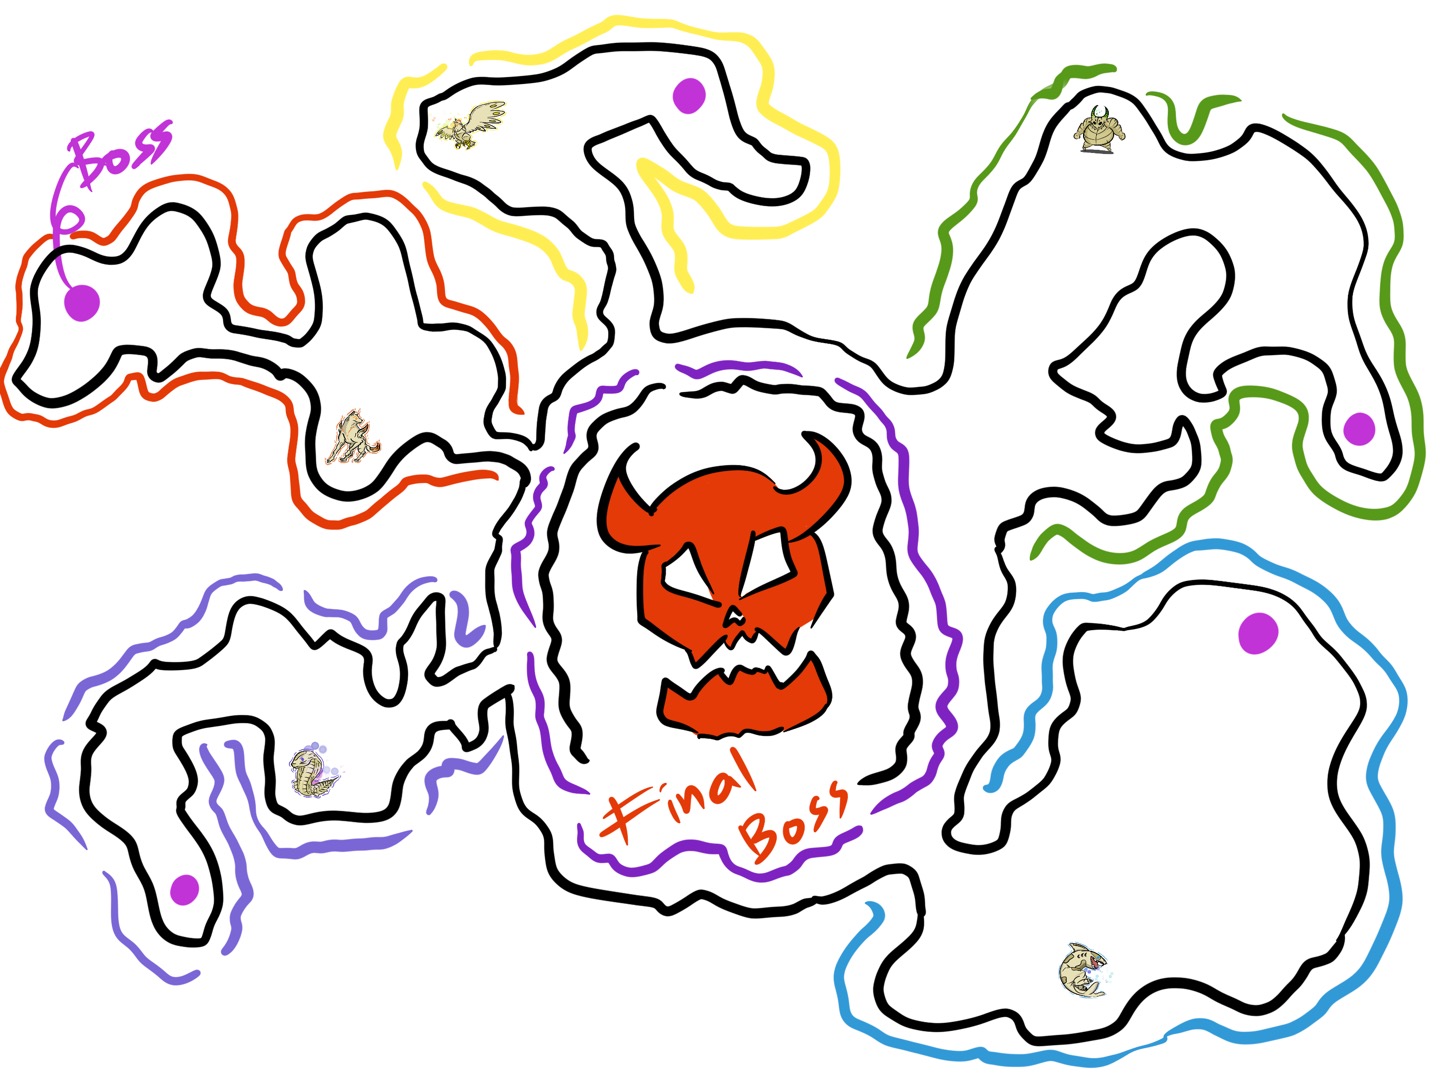 Boss
Final
Boss